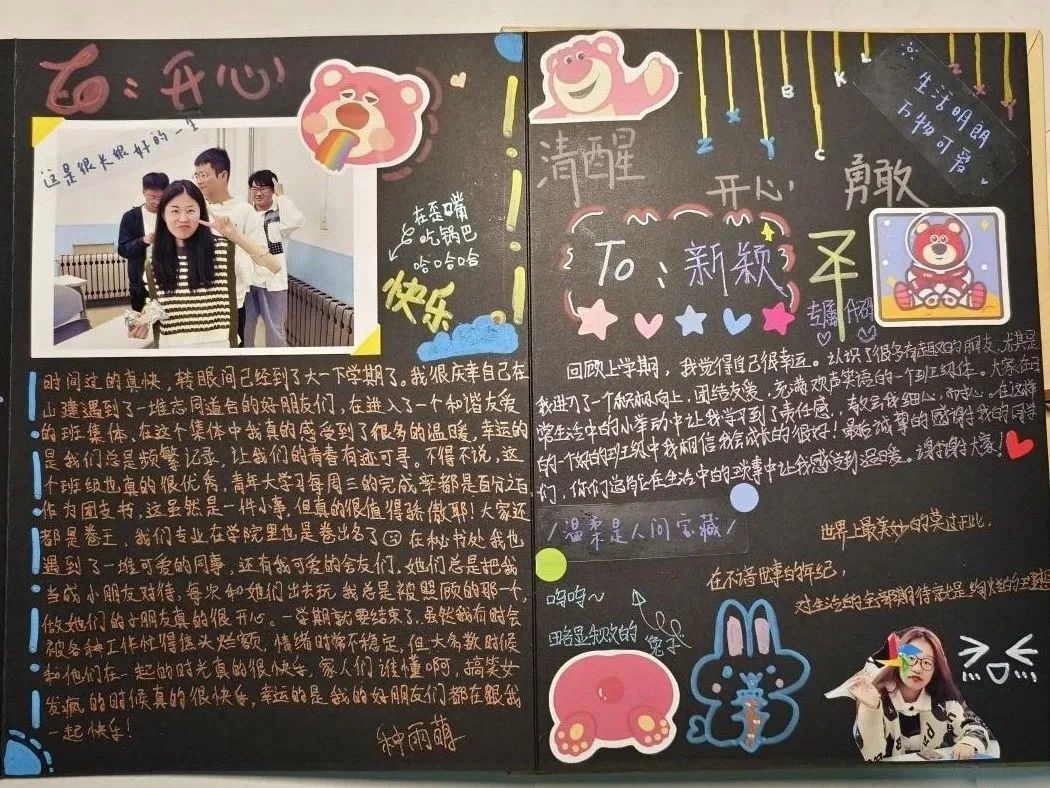 To：开心
这是很长很好的一生
在歪嘴
吃锅巴
哈哈哈哈
快乐
时间过的真快，转眼间已经到了大一下学期了。我很庆幸自己在
山建遇到了一堆志同道合的好朋友们，在进入了一个和谐友爱
的班集体，在这个集体中我真的感受到了很多的温暖，幸运的
是我们总是频繁记录，让我们的青春有迹可寻。不得不说，这
个班级也真的很优秀，青年大学习每周三的完成率都是百分之百
作为团支书，这虽然是一件小事，但真的很值得骄傲耶！大家还
都是卷王，我们专业在学院里也是卷出名了 在秘书处我也
遇到了一堆可爱的同事，还有我可爱的舍友们，她们总是把我
当成小朋友对待，每次和她们出去玩我总是被照顾的那一个，
做她们的小朋友真的很开心。一学期就要结束了，虽然我有时会
被各种工作忙得焦头烂额，情绪时常不稳定，但大多数时候
和他们在一起的时光真的很快乐，家人们谁懂啊，搞笑女
发疯的时候真的很快乐，幸运的是我的好朋友们都在跟我
一起快乐！
种雨萌
B K L
Z X Y
Z Y C
生活明朗
万物可爱
清醒 开心 勇敢
To：新颖
专属代码
回顾上学期，我觉得自己很幸运。认识了很多有趣的朋友，尤其是
我进入了一个积极向上，团结友爱，充满欢声笑语的一个班级体。大家在日
常生活中的小举动中让我学习到了责任感，教会我细心，耐心。在这样
的一个好的班级中我相信我会成长的很好！最后诚挚的感谢我的同学
们，你们总会在生活中的琐事中让我感受到温暖。谢谢大家！
/温柔是人间宝藏/
世界上最美妙的莫过于此，
在不谙世事的年纪，
对生活的全部期待就是
哼哼~
略显失败的兔子